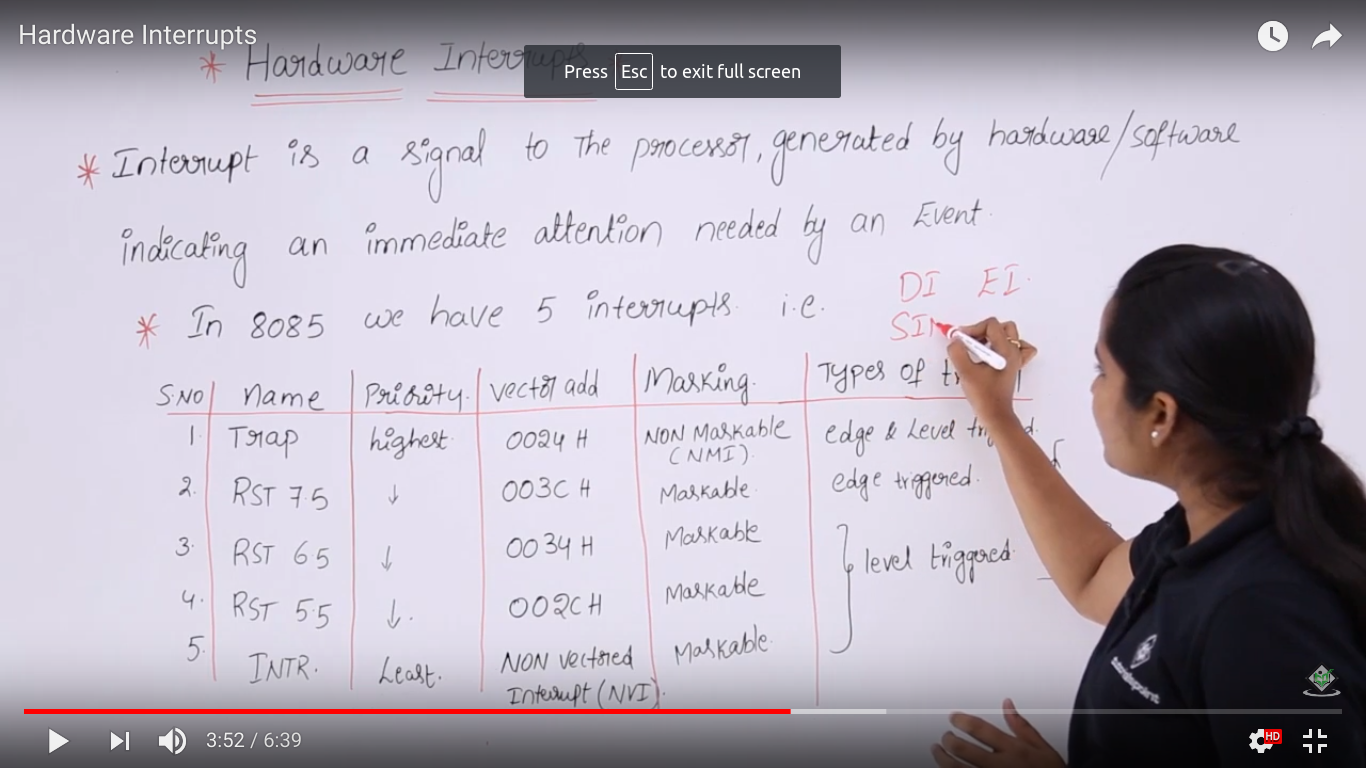 Hardware Interrupts
* Hardware Interrupts
Press Esc to exit full screen
* Interrupt is a signal to the processor, generated by hardware/software
indicating an immediate attention needed by an Event.
DI EI.
* In 8085 we have 5 interrupts. i.e.
S.NO Name Priority. Vector add Masking. Types of
1. Trap highest. 0024 H NON Maskable (NMI). edge & Level
2. RST 7.5 ↓ 003C H Maskable. edge triggered.
3. RST 6.5 ↓ 0034 H Maskable level triggered.
4. RST 5.5 ↓. 002C H Maskable
5. INTR. Least. NON vectored Interupt (NVI). Maskable.
tutorialspoint
3:52 / 6:39
HD